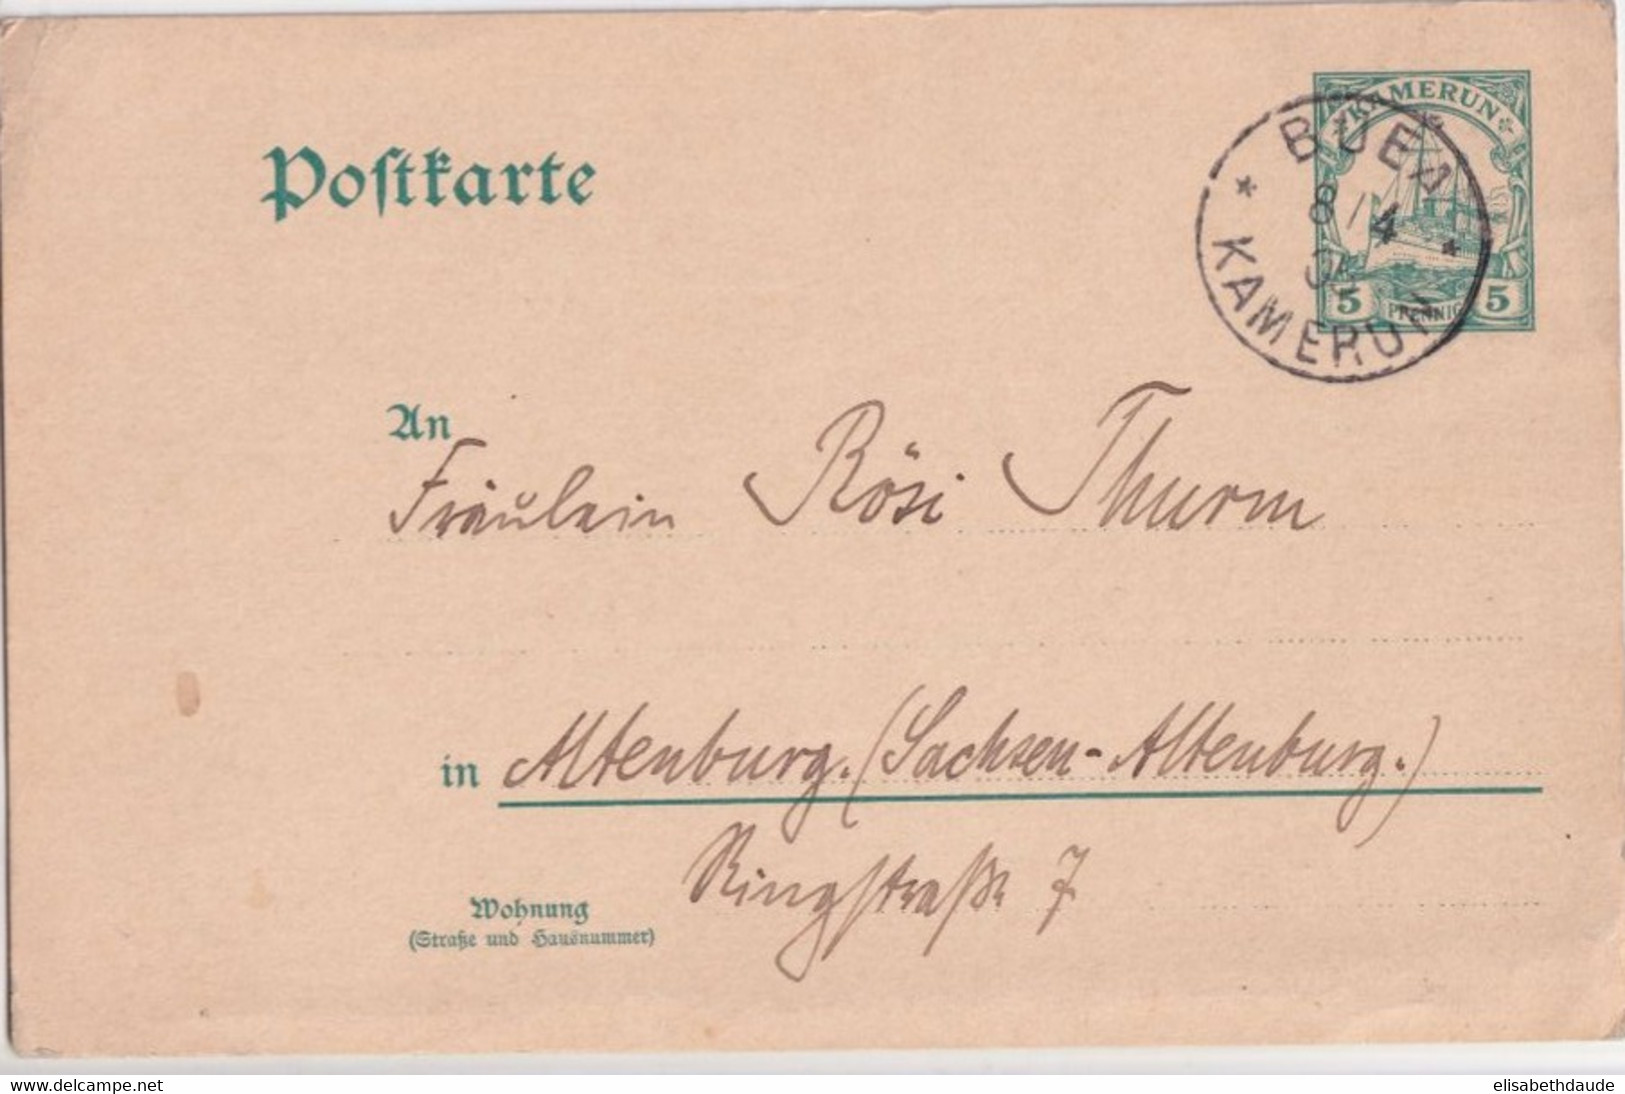 Postkarte
KAMERUN
5 PFENNIG 5
BUEA
8/4
KAMERUN
An
Fräulein Rösi Thurm
in Altenburg. (Sachsen-Altenburg.)
Ringstraße 7
Wohnung
(Straße und Hausnummer)
www.delcampe.net
elisabethdaude